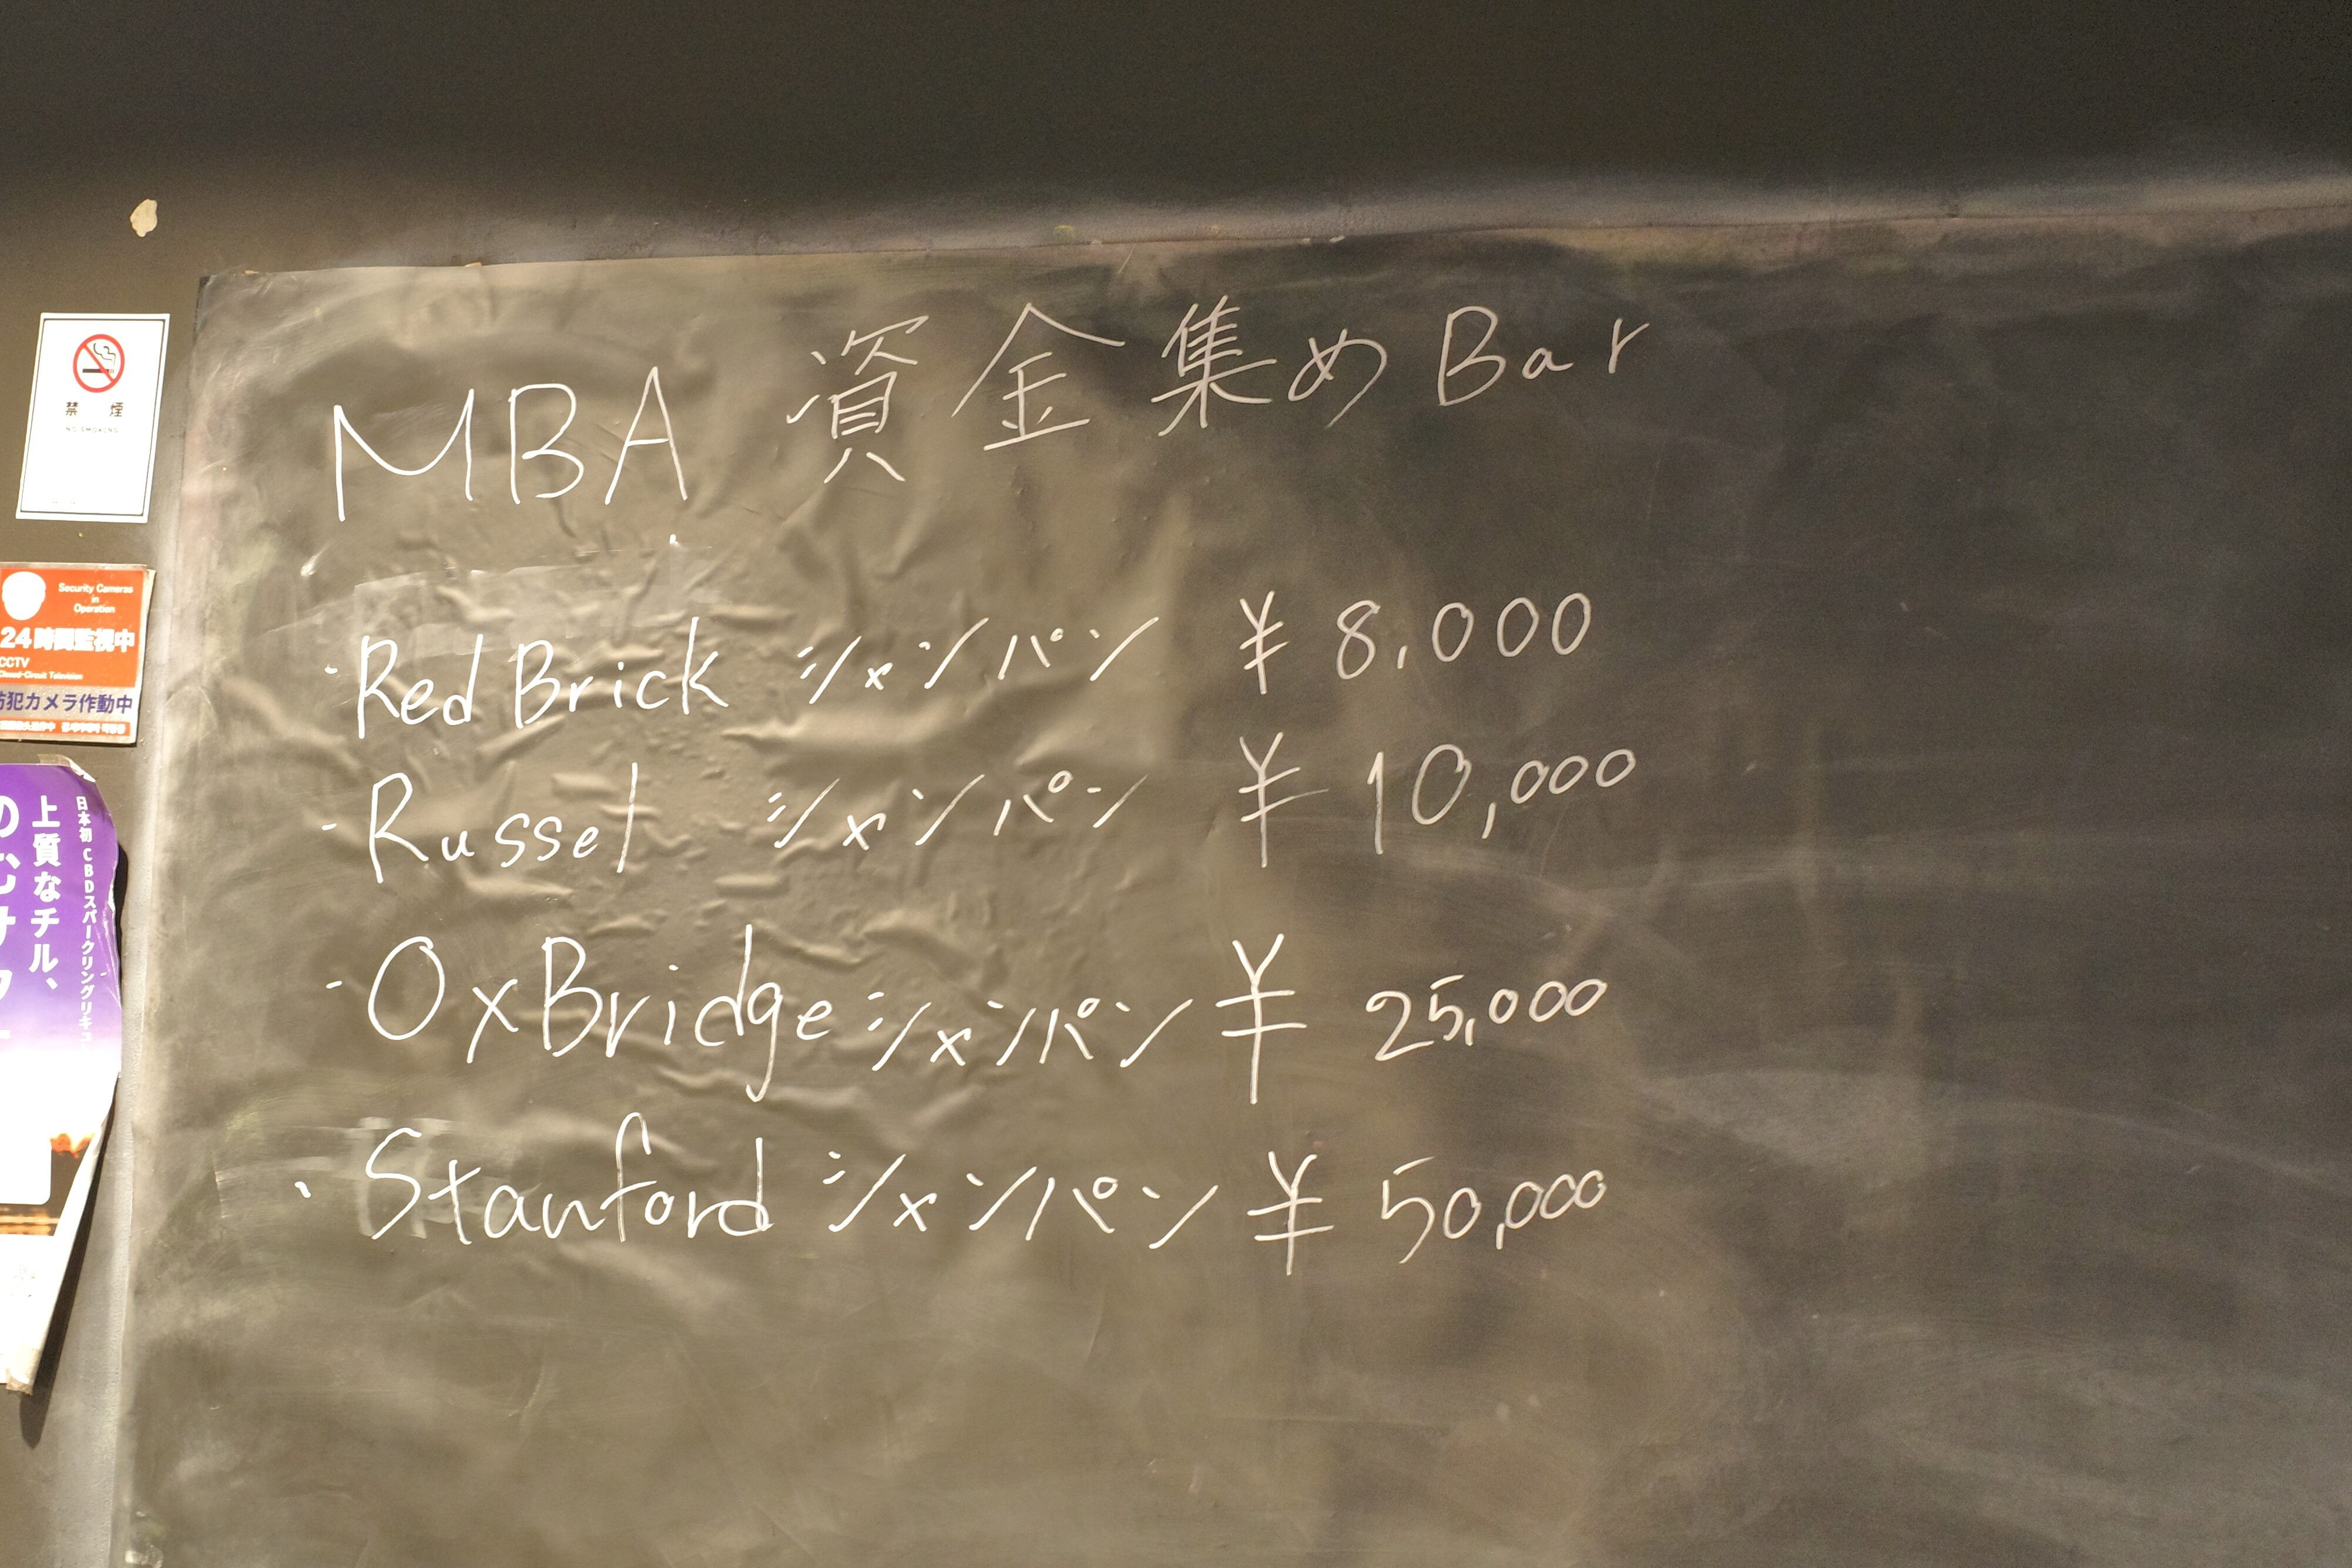 MBA 資金集め Bar
・Red Brick シャンパン ¥ 8,000
・Russel シャンパン ¥ 10,000
・OxBridge シャンパン ¥ 25,000
・Stanford シャンパン ¥ 50,000
禁 煙
NO SMOKING
Security Cameras
in
Operation
24時間監視中
CCTV
Closed-Circuit Television
防犯カメラ作動中
日本初 CBDスパークリングリキュ
上質なチル、